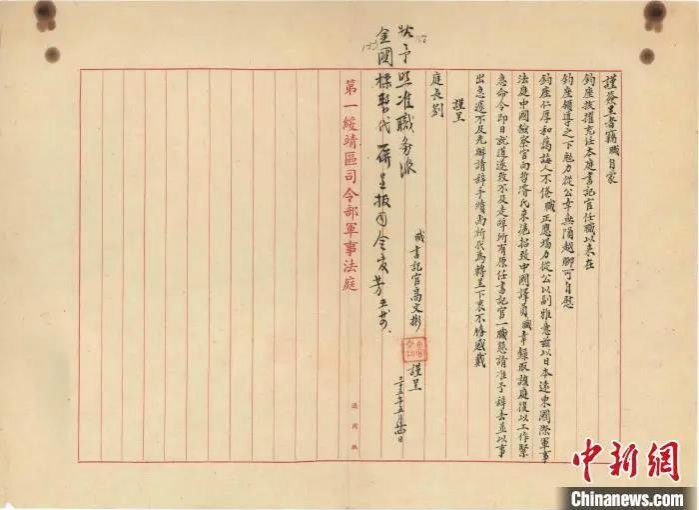 謹簽呈者竊職自蒙
鈞座拔擢充任本庭書記官任職以來在
鈞座領導之下勉力從公幸無隕越聊可自慰
鈞座仁厚和藹誨人不倦職正應竭力從公以副雅意茲以日本遠東國際軍事
法庭中國檢察官向哲濬氏來滬招致中國譯員職幸錄取該庭復以工作緊
急命令即日就道遂致不及走辭所有原任書記官一職懇請准予辭去並以事
出急遽不及先辦請辭手續尚祈我為轉呈下衷不勝感戴
謹呈
庭長劉
職書記官高文彬 謹呈
三十五年五月 日
准予照准職務派
金國樑暫代
第一綏靖區司令部軍事法庭
中新網
Chinanews.com